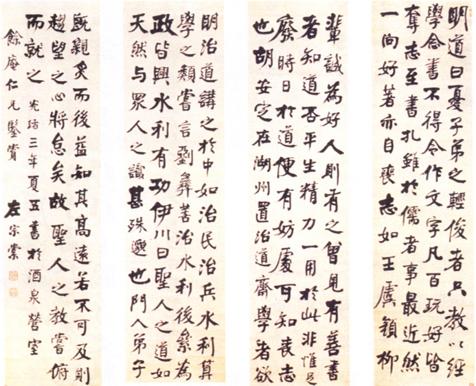 明道曰憂子弟之輕俊者只教以經
學念書不得令作文字凡百玩好皆
奪志至書札雖於儒者事最近然
一向好著亦自喪志如王虞顏柳
輩誠為好人則有之曾見有善書
者知道否平生精力一用於此非惟
廢時日於道便有妨處可知喪志
也胡安定在湖州置治道齋學者欲
明治道講之於中如治民治兵水利算
學之類嘗言劉彝善治水利後累為
政皆興水利有功伊川曰聖人之道如
天然与眾人之識甚殊邈也門人弟子
既親炙而後益知其高遠若不可及則
趨望之心將怠矣故聖人之教嘗俯
而就之 光緒三年夏五書於酒泉營室
餘庵仁兄鑒賞 左宗棠